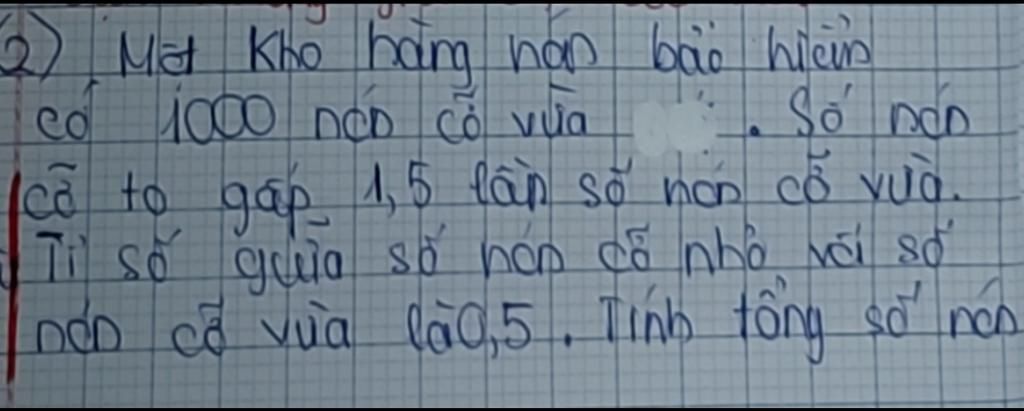 2) Một Kho hàng nón bảo hiểm
có 1000 nón cỡ vừa . Số nón
cỡ to gấp 1,5 lần số nón cỡ vừa.
Tỉ số giữa số nón cỡ nhỏ với số
nón cỡ vừa là 0,5. Tính tổng số nón